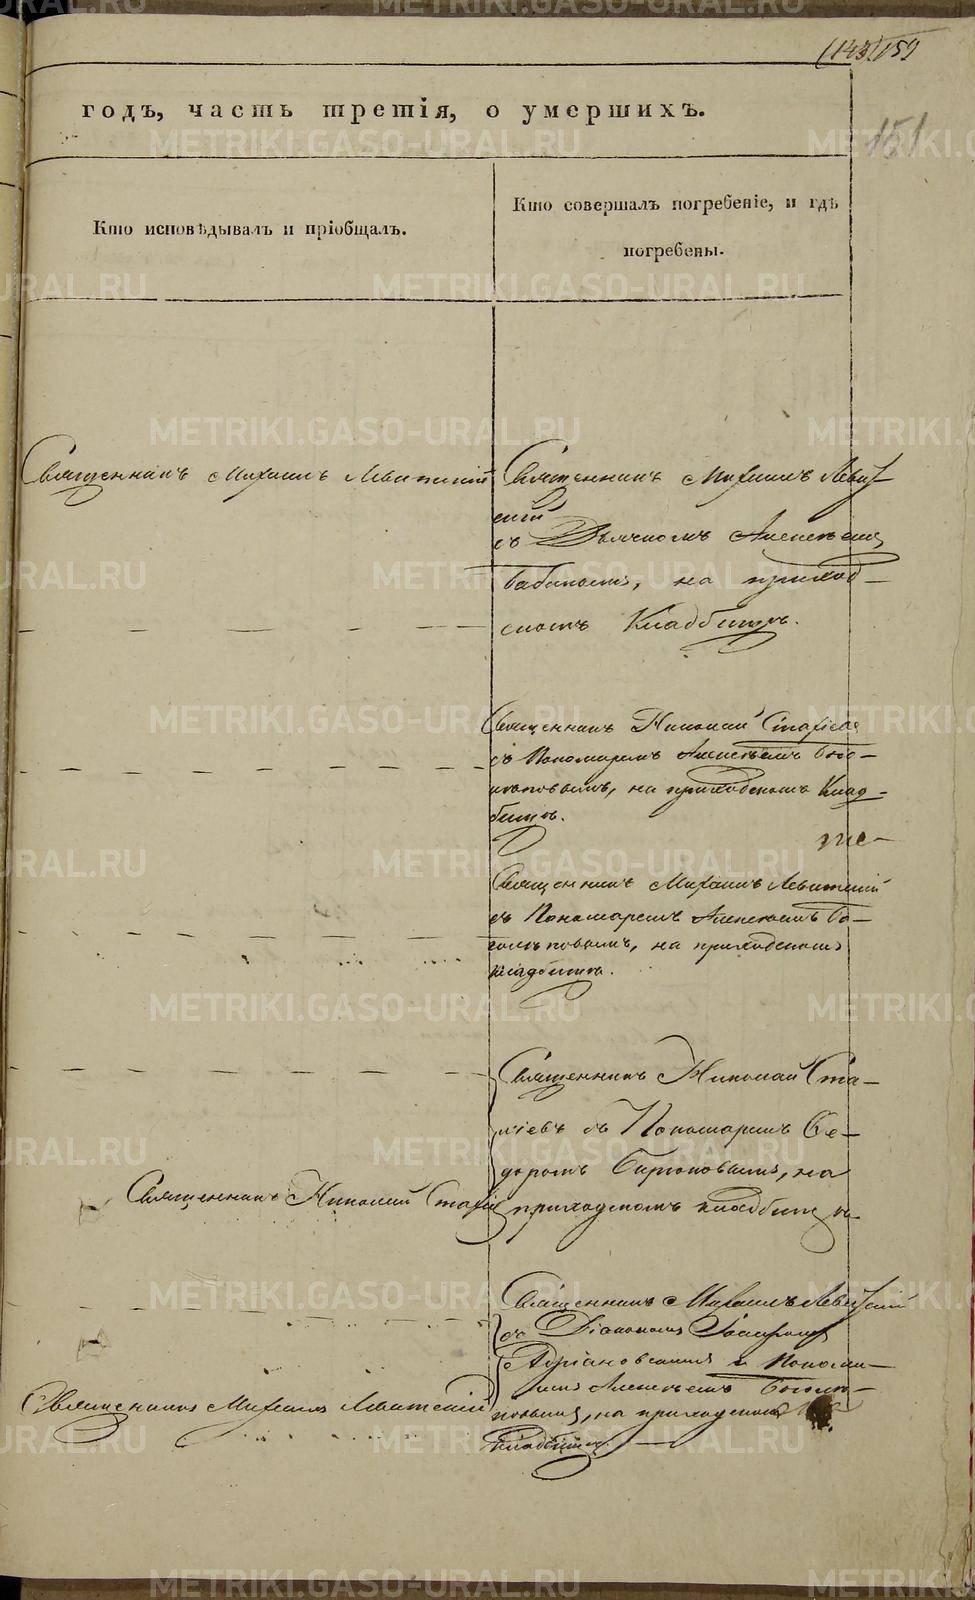 (143) 159
151
годъ, часть третія, о умершихъ.
Кто исповѣдывалъ и пріобщалъ.
Кто совершалъ погребеніе, и гдѣ
погребены.
Священникъ Михаилъ Левитскій
Священникъ Михаилъ Левит
скій
съ Дьячкомъ Алексѣемъ
на приход-
скомъ Кладбищѣ.
Священникъ Николай
съ Пономаремъ Алексѣемъ Бого-
на приходскомъ Клад-
бищѣ.
Священникъ Михаилъ Левитскій
съ Пономаремъ Алексѣемъ Бо-
на приходскомъ
кладбищѣ.
Священникъ Николай Ста-
съ Пономаремъ Ѳе-
доромъ на
приходскомъ кладбищѣ
Священникъ Николай
Священникъ Михаилъ Левитскій
съ Діакономъ
Адріановскимъ и Понома-
Алексѣемъ
на приходскомъ
Кладбищѣ.
Священникъ Михаилъ Левитскій
METRIKI.GASO-URAL.RU